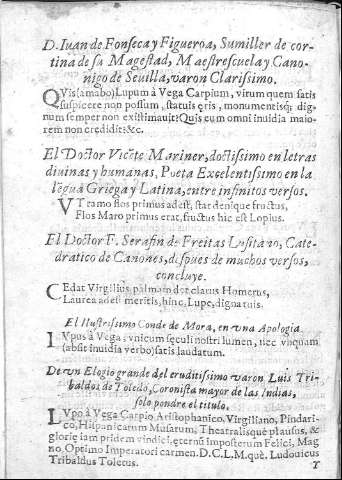 D. Iuan de Fonseca y Figueroa, Sumiller de cor-
tina de su Magestad, Maestrescuela y Cano-
nigo de Seuilla, varon Clarissimo.
QVis (amabo) Lupum à Vega Carpium, virum quem satis
suspicere non possum, statuis ęris, monumentisq; dig-
num semper non existimauit? Quis eum omni inuidia maio-
rem non credidit? &c.
El Doctor Vicēte Mariner, doctissimo en letras
diuinas y humanas, Poeta Excelentissimo en la
lēgua Griega y Latina, entre infinitos versos.
VT ramo flos primus adest, stat denique fructus,
Flos Maro primus erat, fructus hic est Lopius.
El Doctor F. Serafin de Freitas Lusitano, Cate-
dratico de Canones, despues de muchos versos,
concluye.
CEdat Virgilius, palmam det clarus Homerus,
Laurea adest meritis, hinc, Lupe, digna tuis.
El Illustrissimo Conde de Mora, en vna Apologia
LVpus à Vega, vnicum sęculi nostri lumen, nec vnquam
(absit inuidia verbo) satis laudatum.
De vn Elogio grande del eruditissimo varon Luis Tri-
baldos de Toledo, Coronista mayor de las Indias,
solo pondre el titulo.
LVpo à Vega Carpio Aristophanico, Virgiliano, Pindari-
co, Hispanicarum Musarum, Theatralisque plausus, &
glorię iam pridem vindici, ęternūm posterum Felici, Mag
no, Optimo Imperatori carmen. D.C.L.M.què. Ludouicus
Tribaldus Toletus.
T